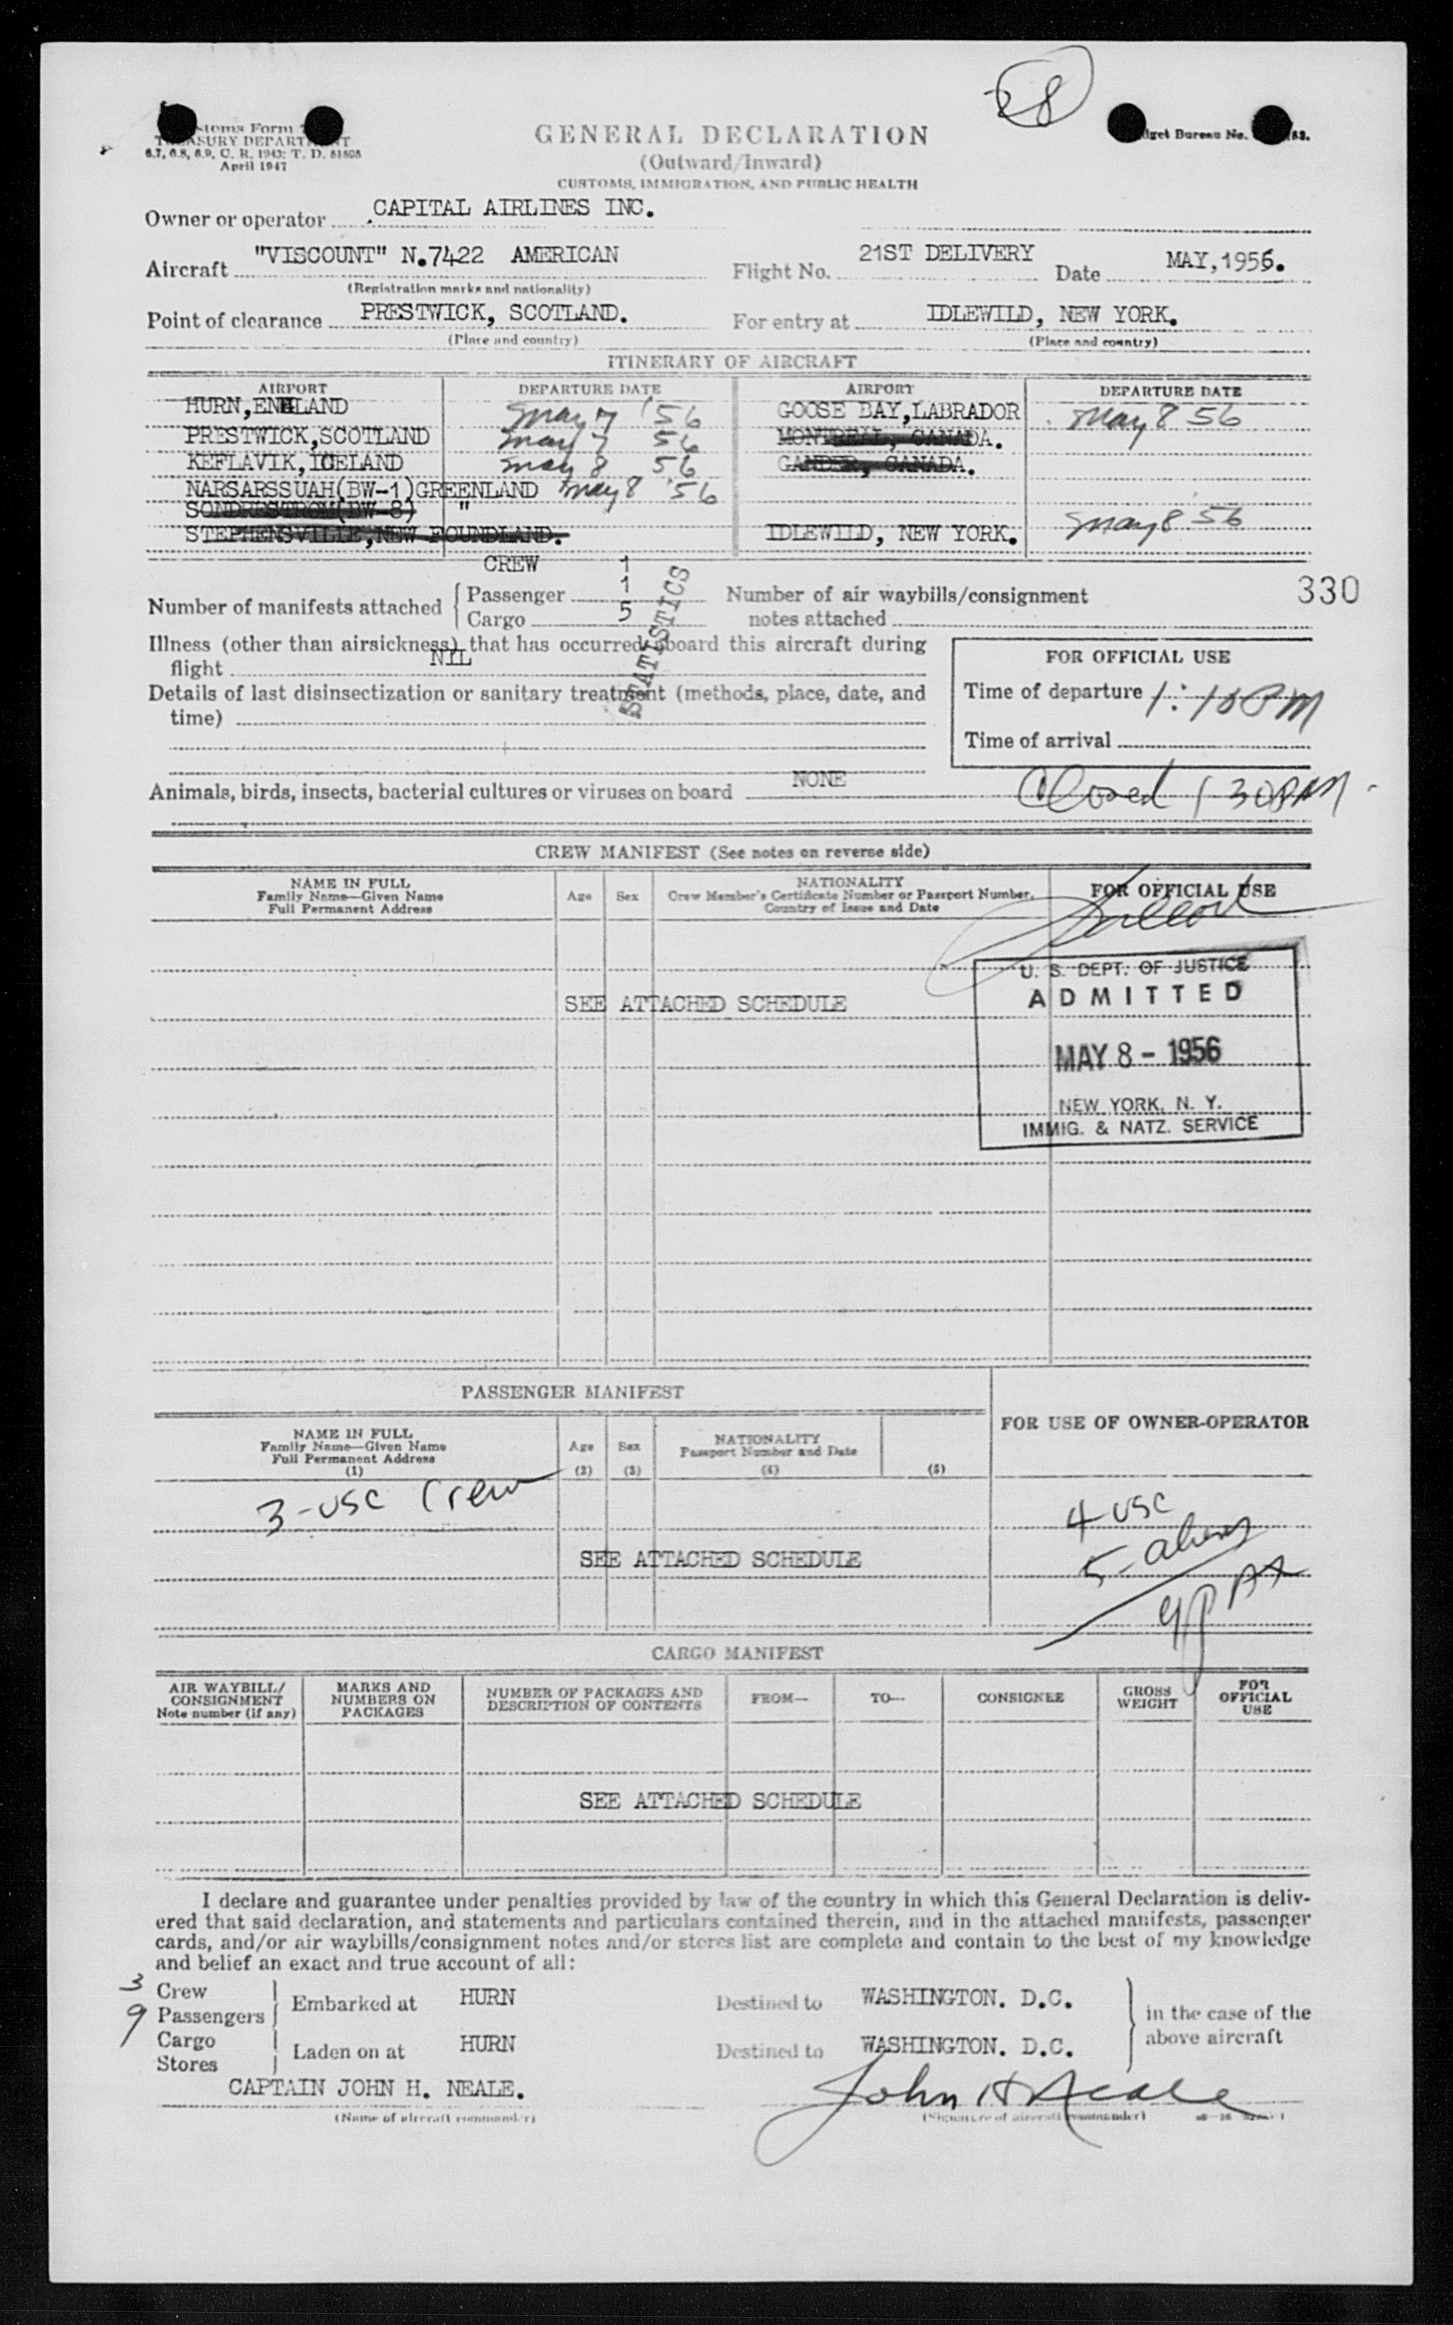 28
GENERAL DECLARATION
(Outward/Inward)
CUSTOMS, IMMIGRATION, AND PUBLIC HEALTH
Form
TREASURY DEPARTMENT
6.7, 6.8, 6.9, C. R. 1943; T. D. 51505
April 1947
Budget Bureau No.
Owner or operator CAPITAL AIRLINES INC.
Aircraft "VISCOUNT" N.7422 AMERICAN Flight No. 21ST DELIVERY Date MAY,1956.
(Registration marks and nationality)
Point of clearance PRESTWICK, SCOTLAND. For entry at IDLEWILD, NEW YORK.
(Place and country) (Place and country)
ITINERARY OF AIRCRAFT
AIRPORT DEPARTURE DATE AIRPORT DEPARTURE DATE
HURN,ENGLAND May 7 '56 GOOSE BAY,LABRADOR May 8 56
PRESTWICK,SCOTLAND May 7 56 MONTREAL, CANADA.
KEFLAVIK,ICELAND May 8 56 GANDER, CANADA.
NARSARSSUAH(BW-1)GREENLAND May 8 '56
SONDRESTROM(BW-8) "
STEPHENSVILLE,NEW FOUNDLAND. IDLEWILD, NEW YORK. May 8 56
CREW 1
Number of manifests attached Passenger 1
Cargo 5
Number of air waybills/consignment
notes attached
330
STATISTICS
Illness (other than airsickness) that has occurred aboard this aircraft during
flight NIL
Details of last disinsectization or sanitary treatment (methods, place, date, and
time)
FOR OFFICIAL USE
Time of departure 1:10 PM
Time of arrival
Closed 1 30 PM
Animals, birds, insects, bacterial cultures or viruses on board NONE
CREW MANIFEST (See notes on reverse side)
NAME IN FULL
Family Name—Given Name
Full Permanent Address
Age
Sex
NATIONALITY
Crew Member's Certificate Number or Passport Number,
Country of Issue and Date
FOR OFFICIAL USE
SEE ATTACHED SCHEDULE
U. S. DEPT. OF JUSTICE
ADMITTED
MAY 8 - 1956
NEW YORK, N. Y.
IMMIG. & NATZ. SERVICE
PASSENGER MANIFEST
NAME IN FULL
Family Name—Given Name
Full Permanent Address
(1)
Age
(2)
Sex
(3)
NATIONALITY
Passport Number and Date
(4)
(5)
FOR USE OF OWNER-OPERATOR
3-USC Crew
SEE ATTACHED SCHEDULE
4 USC
5-aliens
9 PAX
CARGO MANIFEST
AIR WAYBILL/
CONSIGNMENT
Note number (if any)
MARKS AND
NUMBERS ON
PACKAGES
NUMBER OF PACKAGES AND
DESCRIPTION OF CONTENTS
FROM—
TO—
CONSIGNEE
GROSS
WEIGHT
FOR
OFFICIAL
USE
SEE ATTACHED SCHEDULE
I declare and guarantee under penalties provided by law of the country in which this General Declaration is deliv-
ered that said declaration, and statements and particulars contained therein, and in the attached manifests, passenger
cards, and/or air waybills/consignment notes and/or stores list are complete and contain to the best of my knowledge
and belief an exact and true account of all:
3 Crew
9 Passengers Embarked at HURN Destined to WASHINGTON. D.C. in the case of the
Cargo above aircraft
Stores Laden on at HURN Destined to WASHINGTON. D.C.
CAPTAIN JOHN H. NEALE. John H Neale
(Name of aircraft commander) (Signature of aircraft commander)